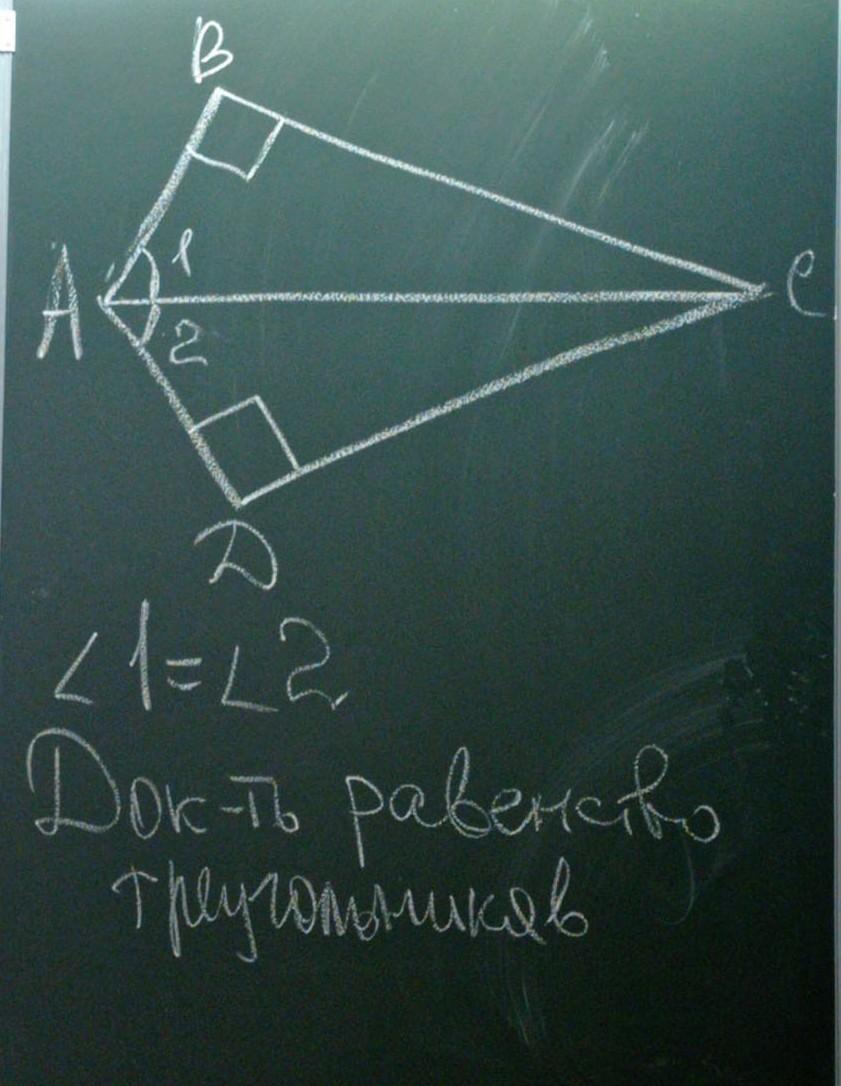 B
1
A
C
2
D
∠1=∠2
Док-ть равенство
треугольников